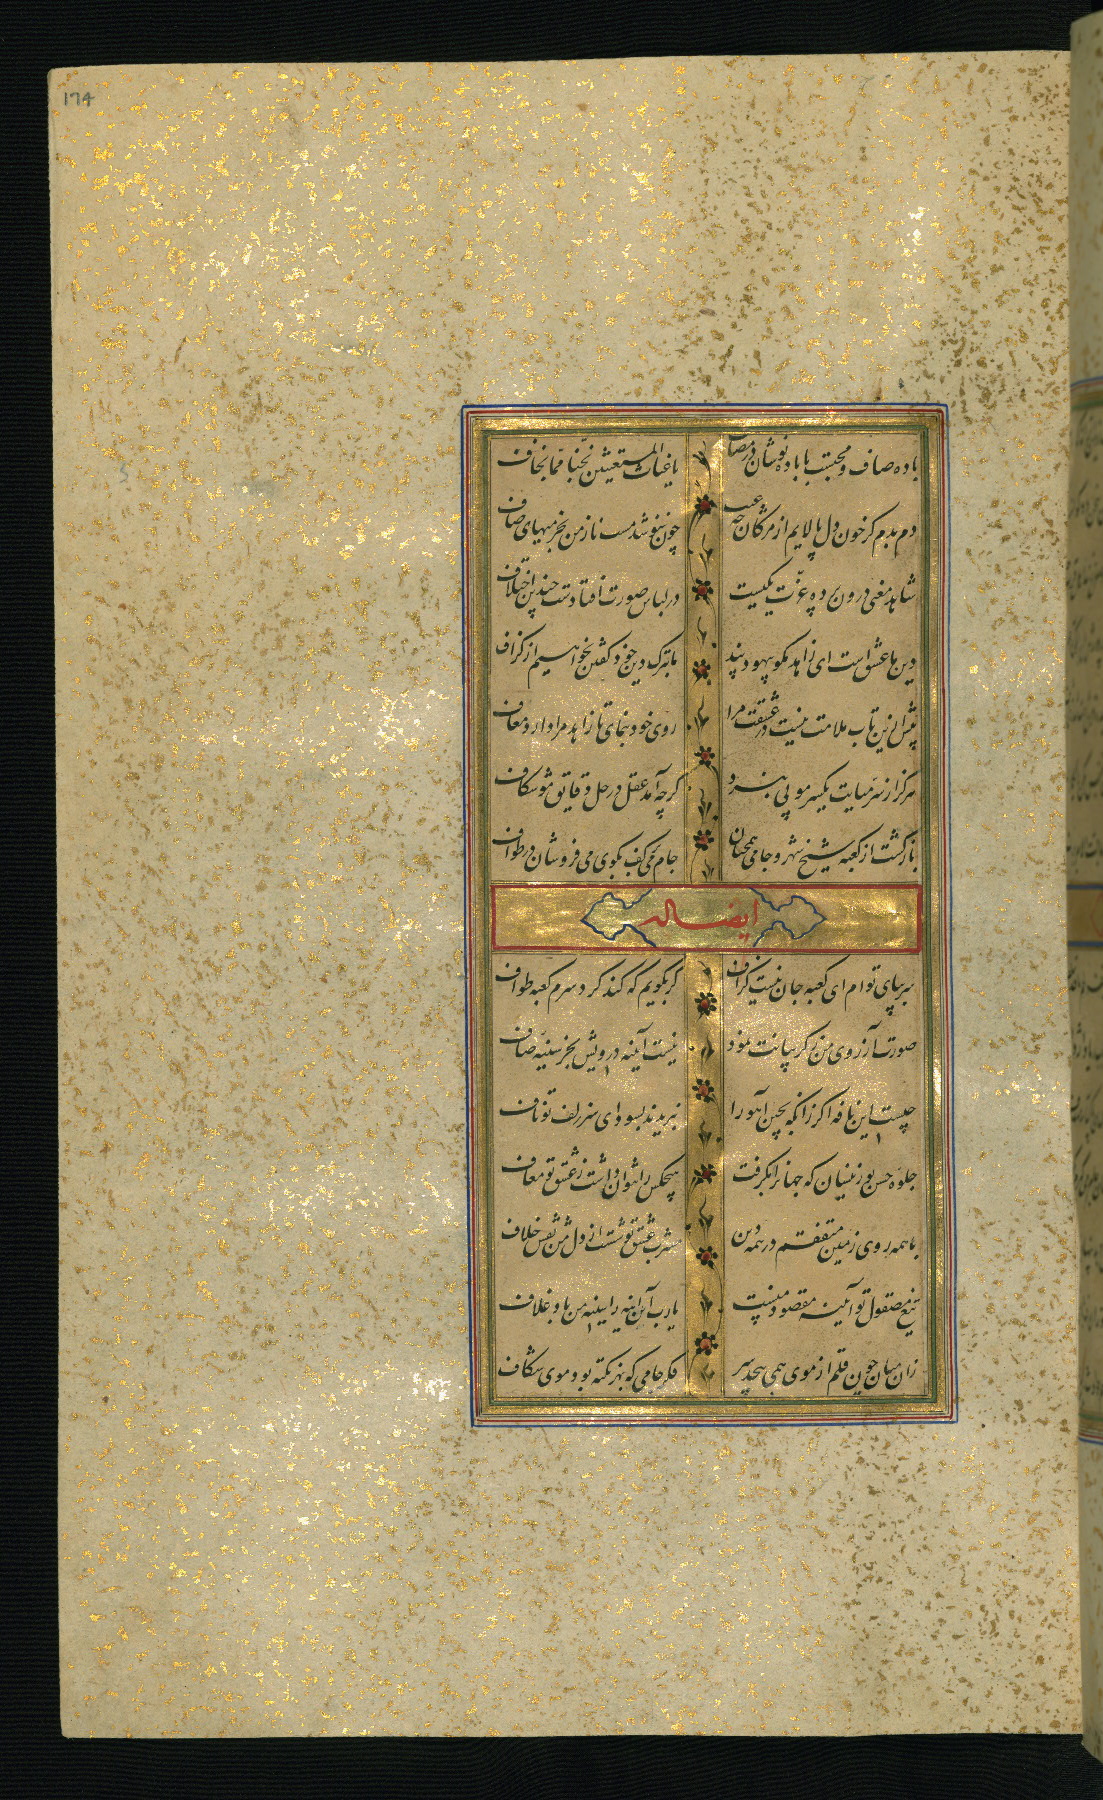 ۱۷۴
باده صاف و محتسب با باده نوشان در مصاف
یا غیاث المستغیثین نجنا مما نخاف
دم بدم گر خون دل پالایم از مژگان چه عیب
چون ننوشد مست ناز من بجز میهای صاف
شاهد معنی درون پرده عزت یکیست
در لباس صورت افتادست چندین اختلاف
دین ما عشق است ای زاهد مگو بیهوده پند
ما بترک دین خود گفتن نخواهیم از گزاف
پیش ازین تاب ملامت نیست در عشقت مرا
روی خود بنمای تا زاهد مرا دارد معاف
هرگز از سر میانت یکسر مو پی نبرد
گرچه آمد عقل در حل دقایق موشکاف
بازگشت از کعبه شیخ شهر و جامی همچنان
جام می بر کف بکوی می فروشان در طواف
ایضا له
سر بپای توام ای کعبه جان نیست گزاف
گر بگویم که کند گرد سرم کعبه طواف
صورت آرزوی من ز گریبانت نمود
نیست آیینه درویش بجز سینه صاف
چیست این نافه اگر زانکه بچین آهو را
نبریدند بسودای سر زلف تو ناف
جلوه حسن تو زینسان که جهانرا بگرفت
هیچکس را نتوان داشت ز عشق تو معاف
با همه روی زمین متفقم در همه دین
مشرب عشق تو شست از دل من نقش خلاف
تیغ مصقول تو آیینه مقصود منست
یارب آن آینه را سینه من باد غلاف
زان میان چون قلم از موی همی پیچد سر
فکر جامی که بهر نکته بود موی شکاف